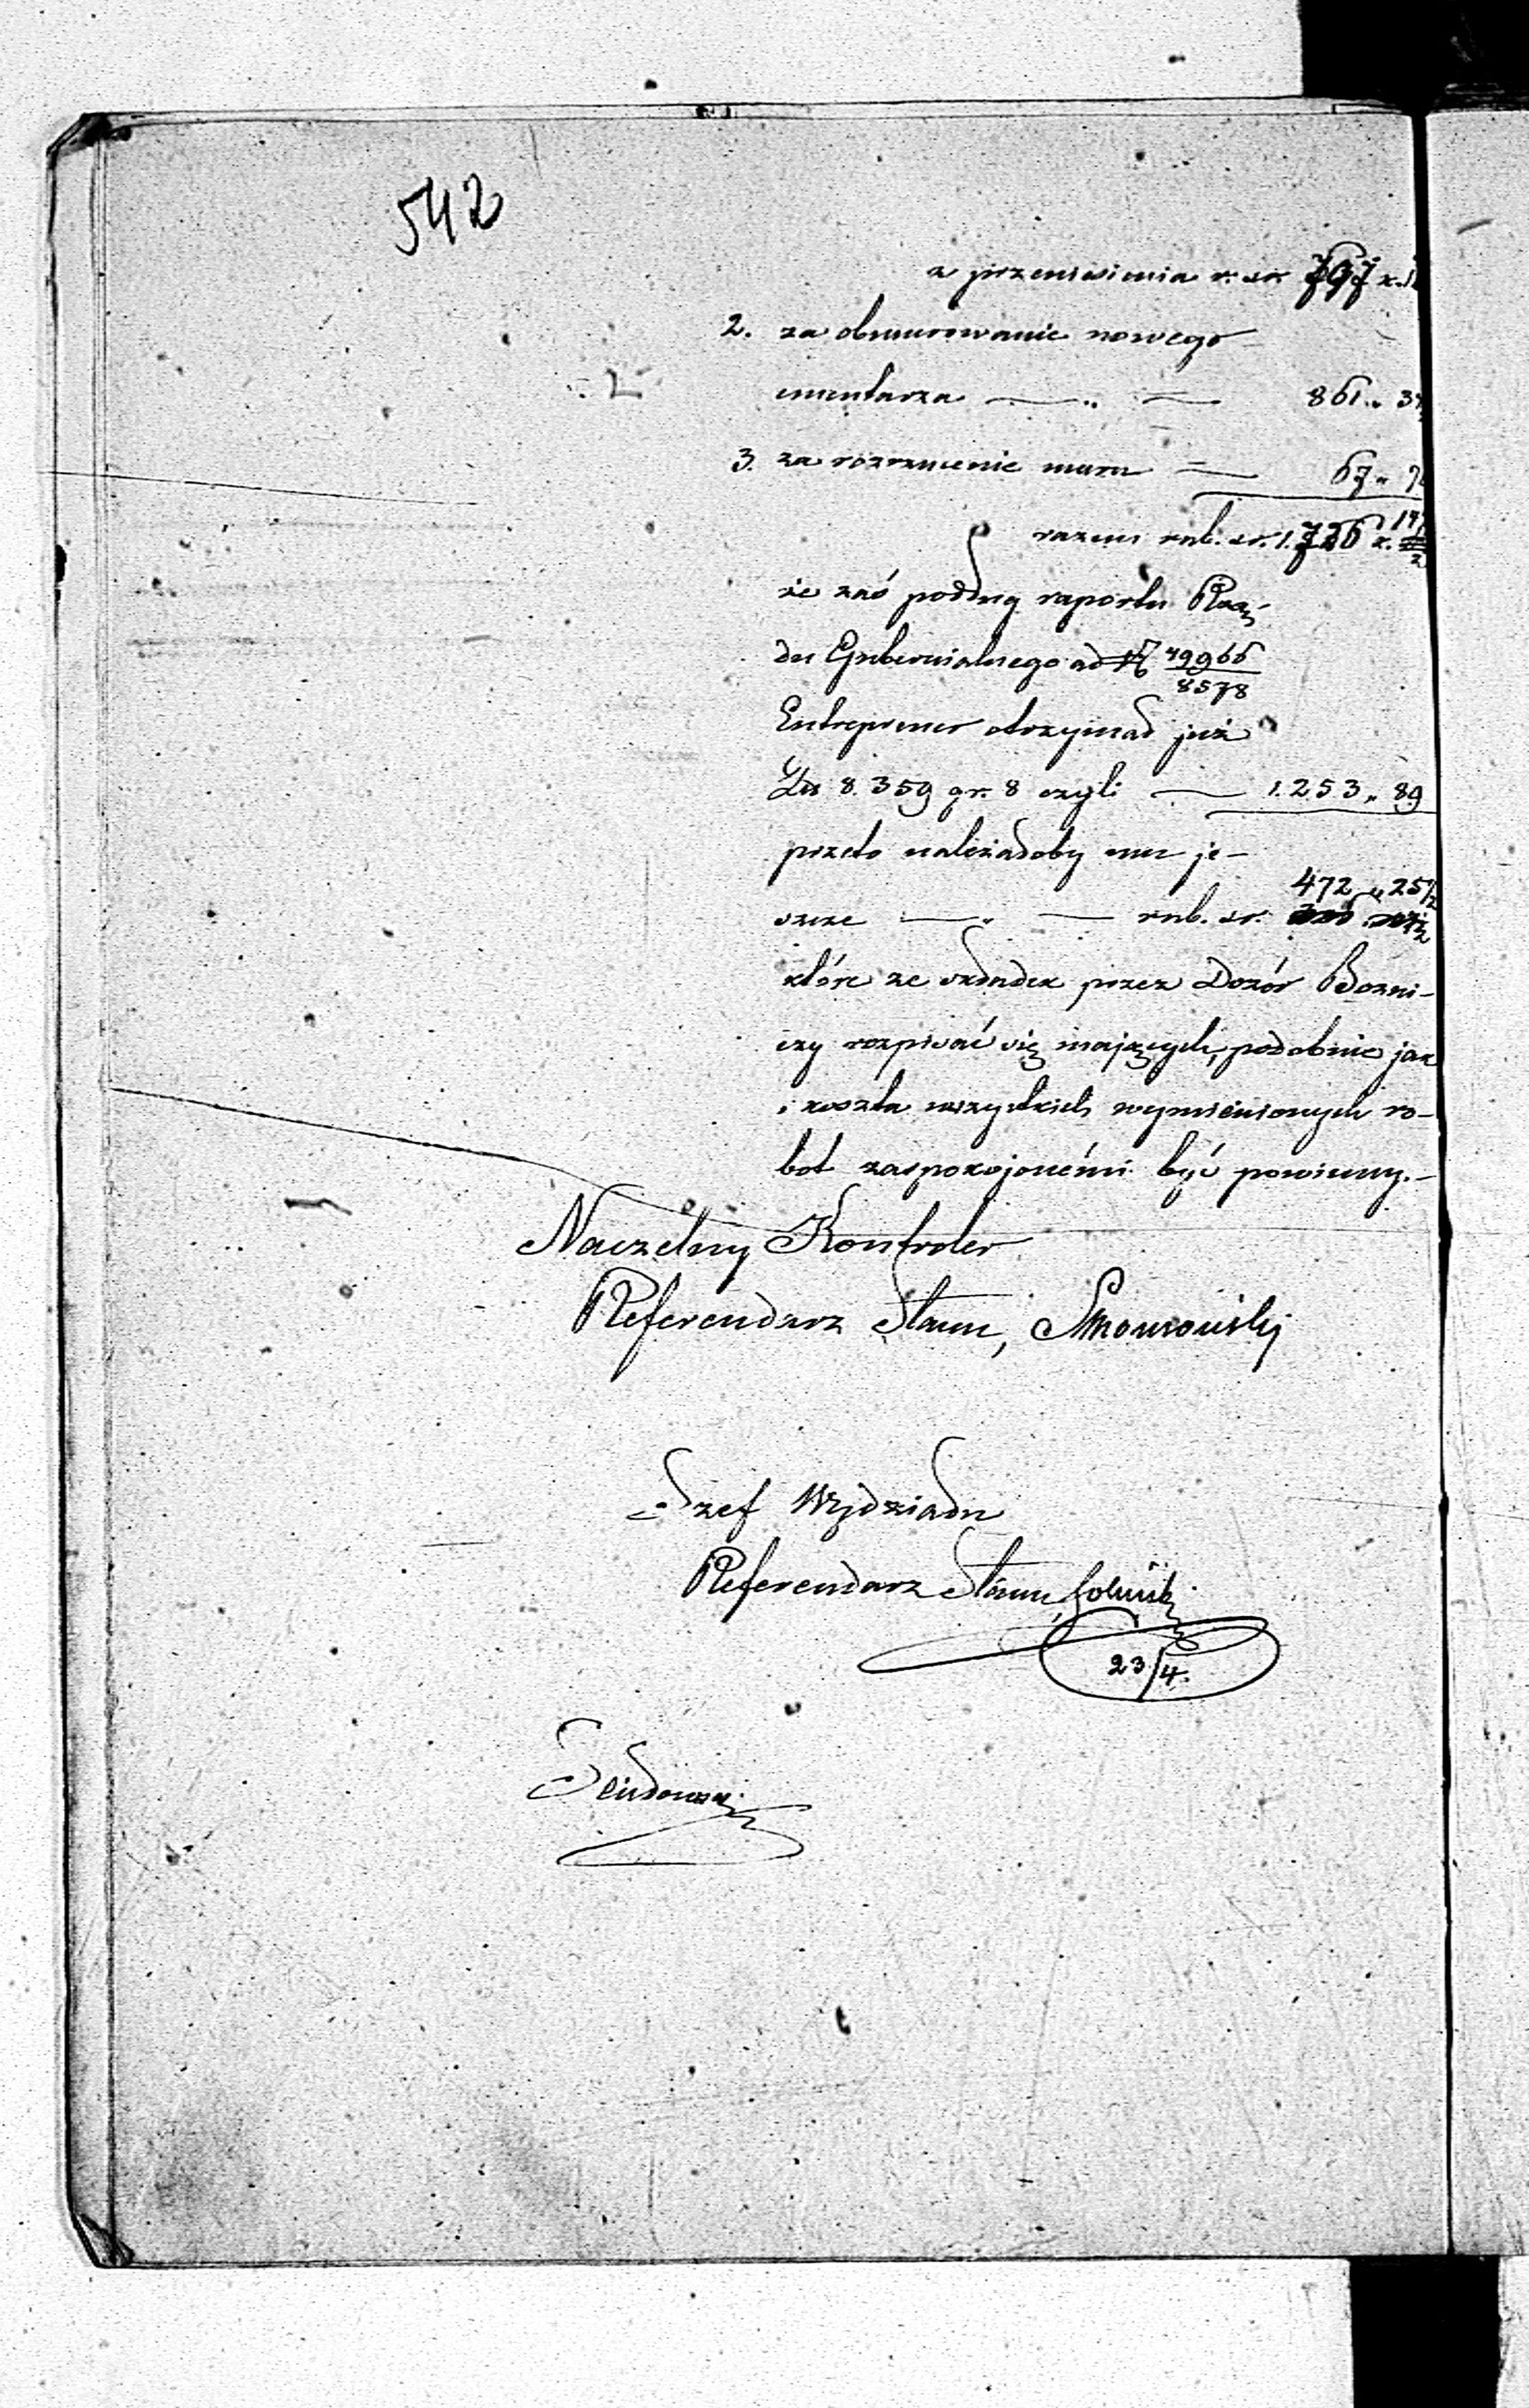 542
z przeniesienia r. sr. 797 k.
2. za obmurowanie nowego
cmentarza — „ — 861 „ 37
3. za rozrzucenie muru — 67 „
razem rub. sr. 1.726 k. 14
że zaś podług raportu Rzą-
du Gubernialnego ad N 49966/8578
Entreprener otrzymał już
Złp 8.359 gr. 8 czyli — 1.253 „ 89
przeto należałoby mu je-
472 „ 25 1/2
szcze — „ — rub. sr.
które ze składek przez Dozór Bożni-
czy rozpisać się mających, podobnie jak
i koszta wszystkich wymienionych ro-
bot zaspokojonémi być powinny.—
Naczelny Kontroler
Referendarz Stanu,
Szef Wydziału
Referendarz Stanu
23/4.